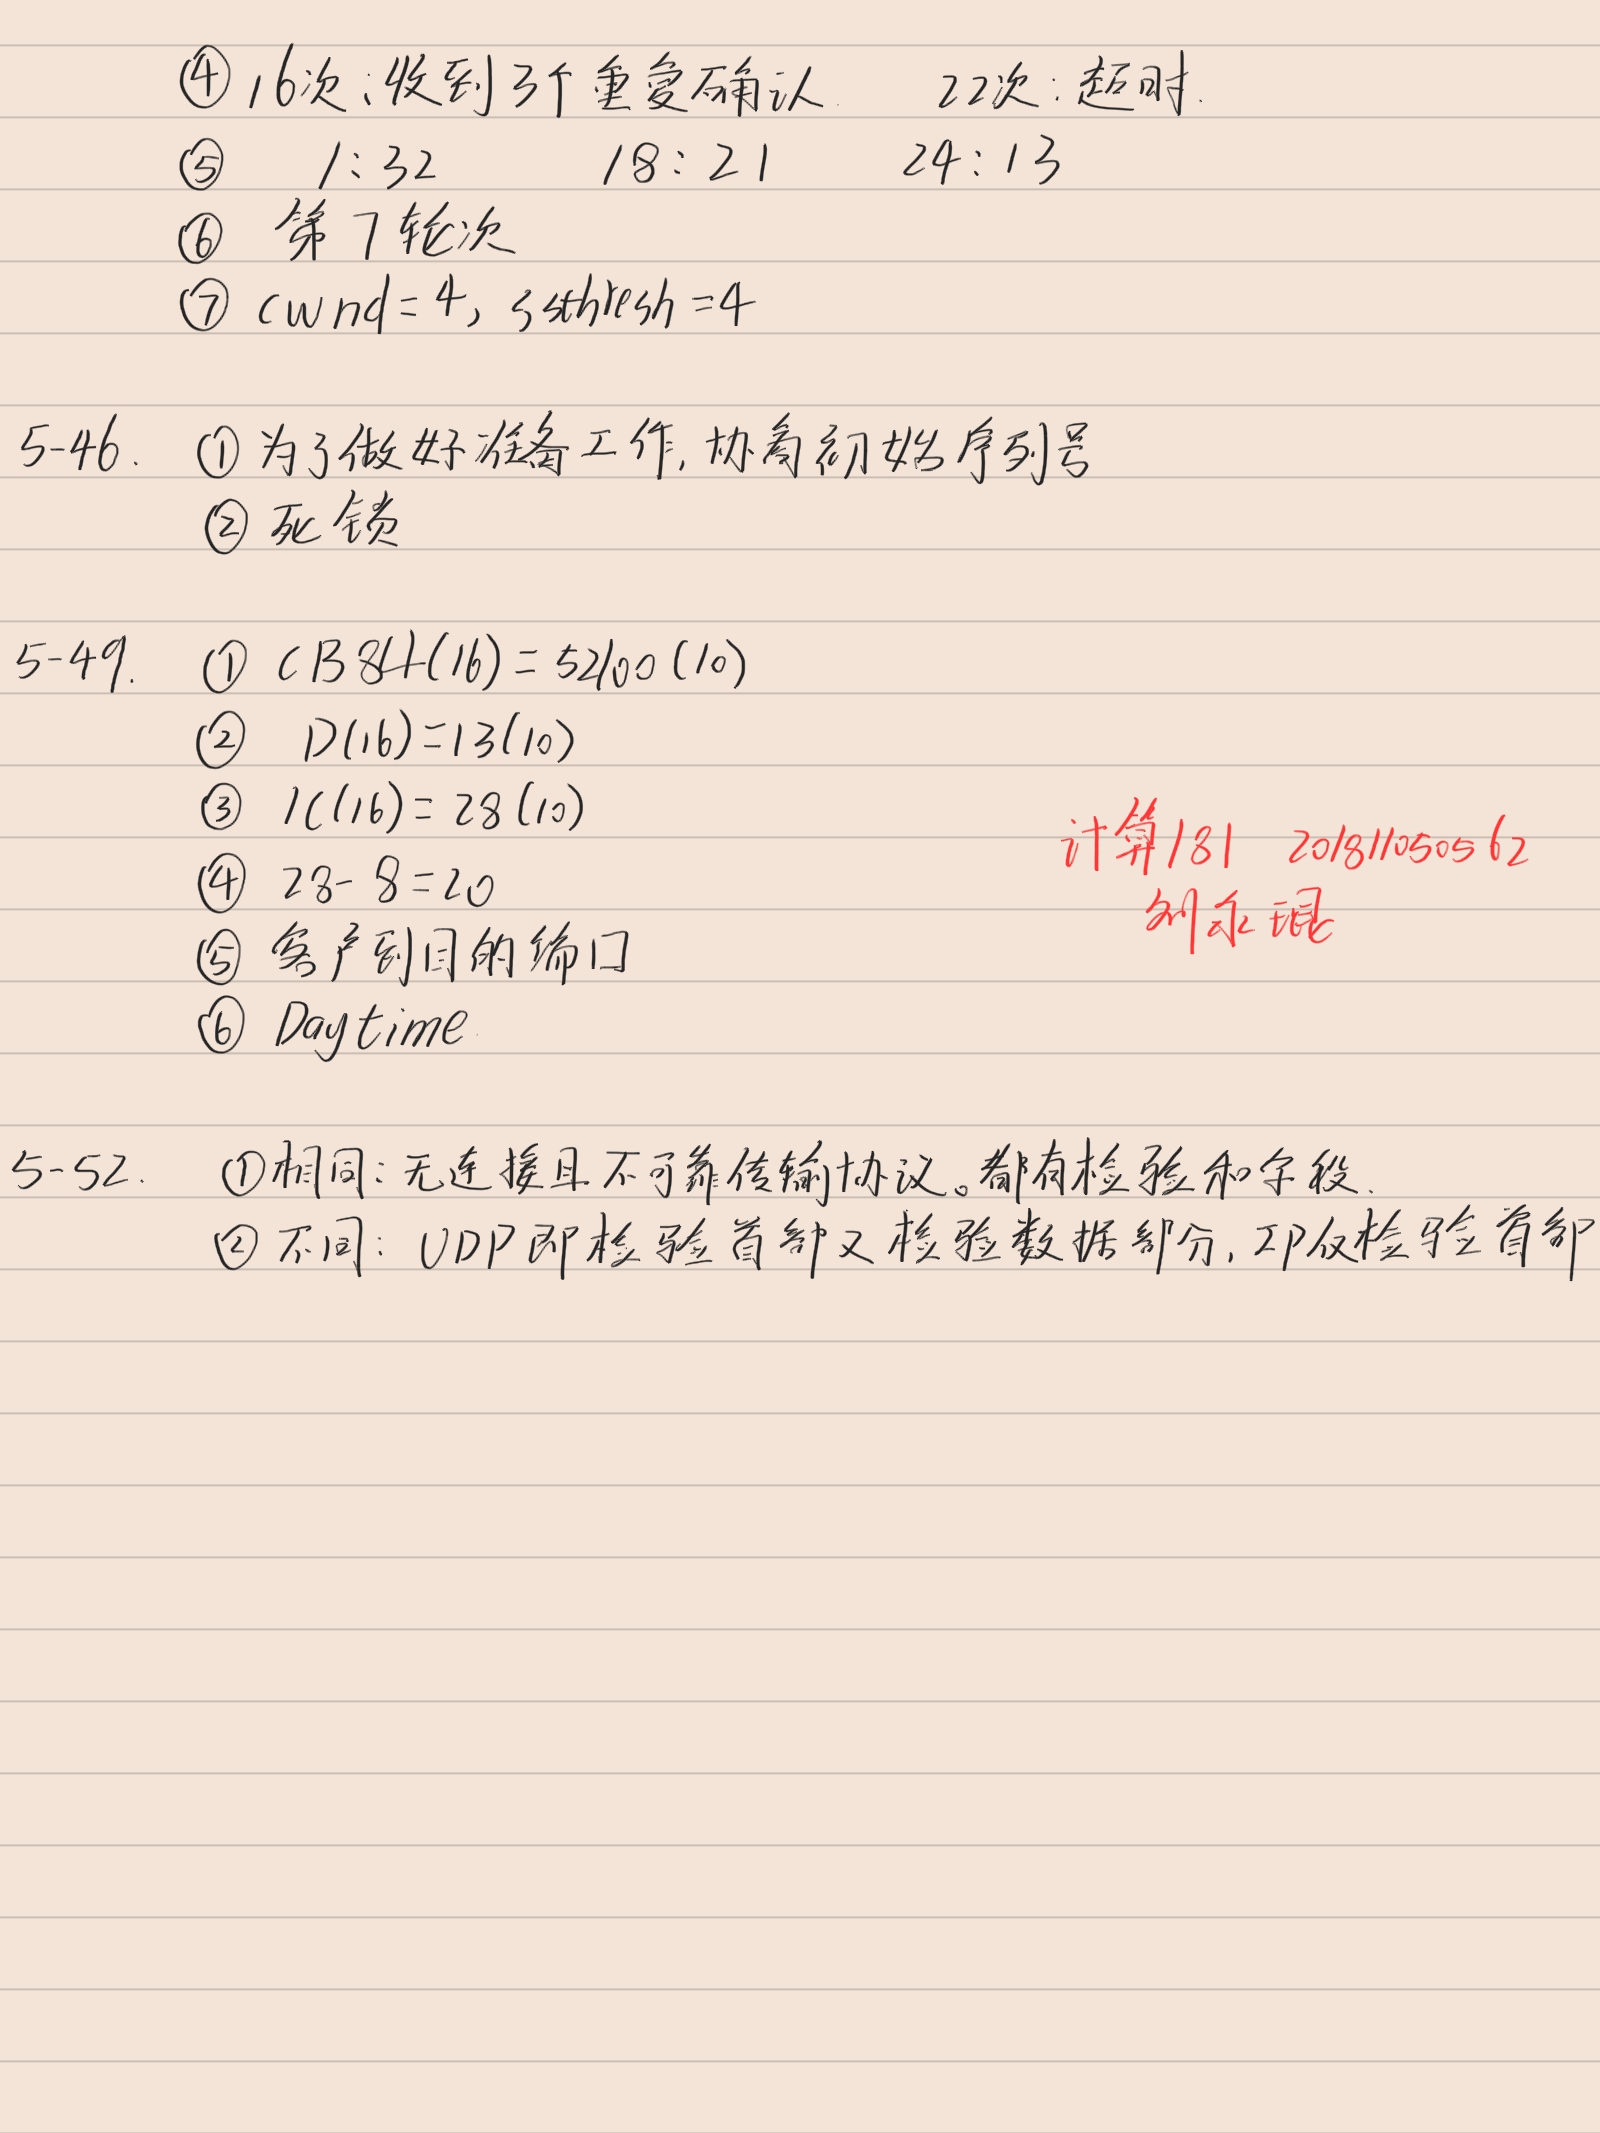 ④ 16次：收到3个重复确认. 22次：超时.
⑤ 1:32 18:21 24:13
⑥ 第7轮次
⑦ cwnd=4, ssthresh=4
5-46. ①为了做好准备工作,协商初始序列号
②死锁
5-49. ① CB84(16)=52100(10)
② D(16)=13(10)
③ 1C(16)=28(10)
④ 28-8=20
⑤ 客户到目的端口
⑥ Daytime.
计算181 201811050562
刘永琨
5-52. ①相同：无连接且不可靠传输协议。都有检验和字段.
②不同：UDP即检验首部又检验数据部分,IP仅检验首部